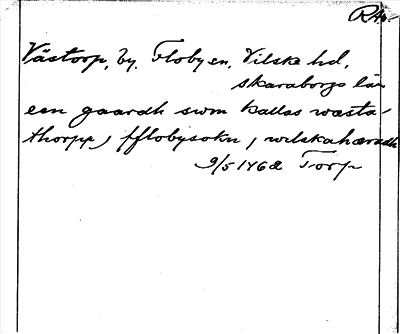 RAp.
Västorp, by. Floby sn. Vilske hd.
Skaraborgs län
een gaardh swm kallas wæsta-
thorpp, j fflobysokn j wilskahæradh
9/5 1462 Torp